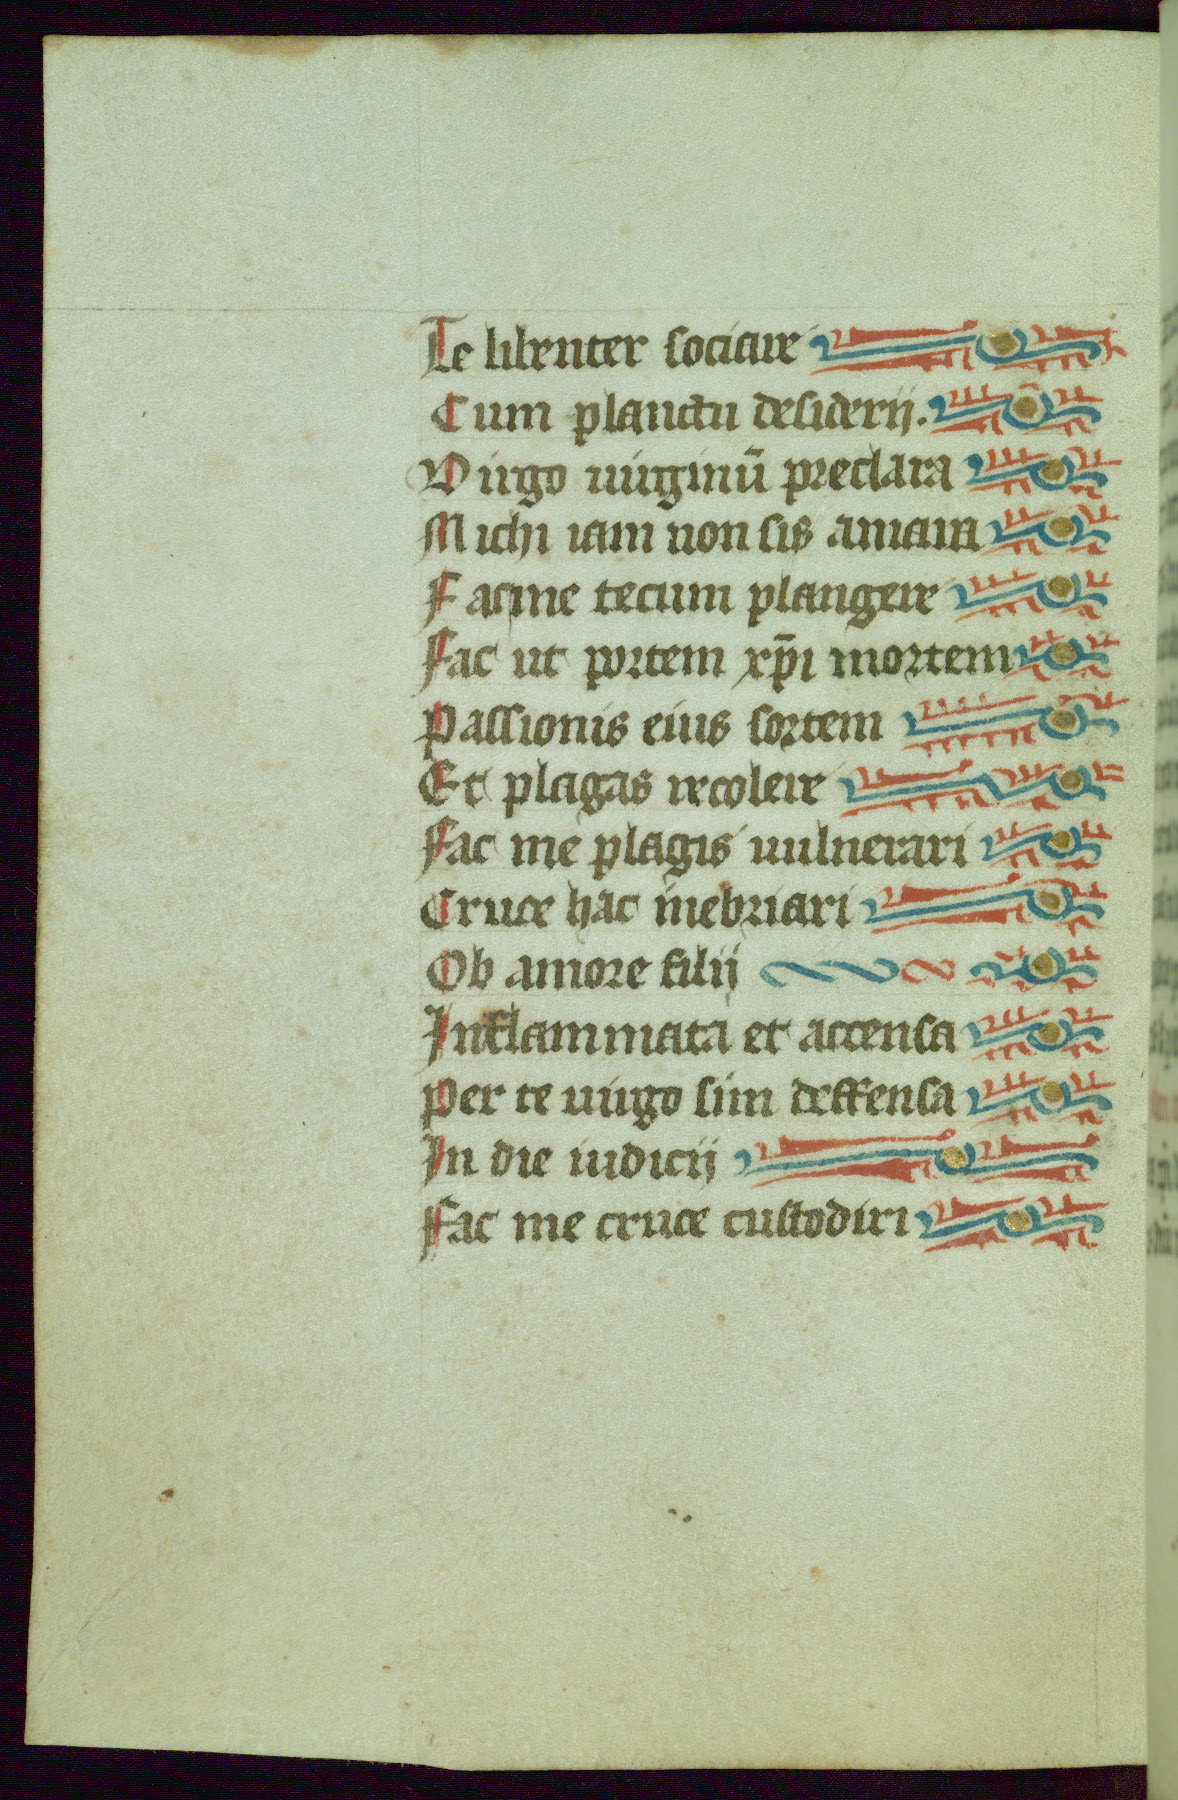 Te libenter sociare
Cum planctu desiderij.
Virgo uirginū preclara
Michi iam non sis amara
Fac me tecum plangere
Fac ut portem xp̄i mortem
Passionis eius sortem
Et plagas recolere
Fac me plagis uulnerari
Cruce hac inebriari
Ob amore filij
Inflammata et accensa
Per te uirgo sim deffensa
In die iudicij
Fac me cruce custodiri